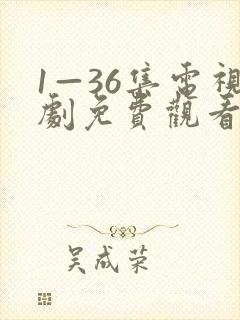 1—36集電視
劇免費觀看
吴成荣